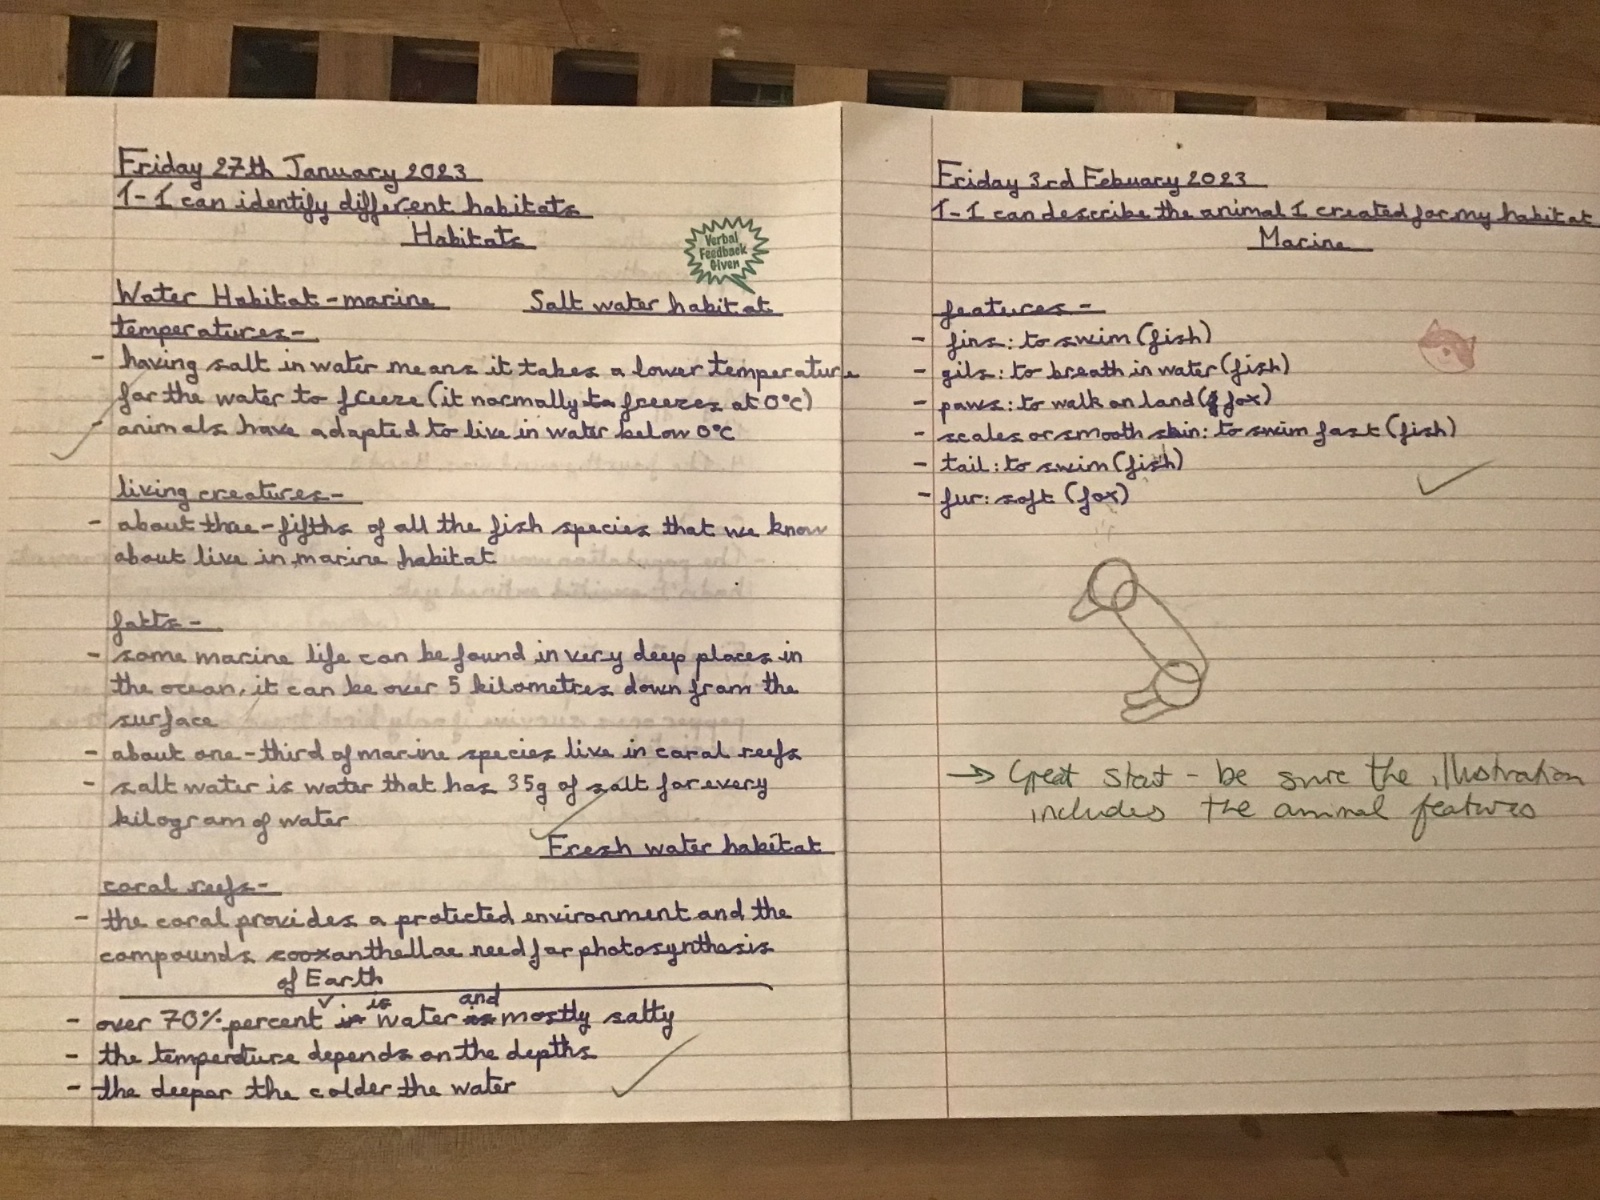 Friday 27th January 2023
I-I can identify different habitats
Habitats
Verbal
Feedback
Given
Water Habitat-marine Salt water habitat
temperatures-
- having salt in water means it takes a lower temperature
for the water to freeze (it normally freezes at 0°c)
- animals have adapted to live in water below 0°c
living creatures-
- about three-fifths of all the fish species that we know
about live in marine habitat
fatts-
- some marine life can be found in very deep places in
the ocean, it can be over 5 kilometres down from the
surface
- about one-third of marine species live in coral reefs
- salt water is water that has 35g of salt for every
kilogram of water
Fresh water habitat
coral reefs-
- the coral provides a protected environment and the
compounds zooxanthellae need for photosynthesis
of Earth
is and
- over 70% percent water mostly salty
- the temperature depends on the depths
- the deeper the colder the water
Friday 3rd Febuary 2023
I-I can describe the animal I created for my habitat
Marine
features-
- fins: to swim (fish)
- gils: to breath in water (fish)
- paws: to walk on land (fox)
- scales or smooth skin: to swim fast (fish)
- tail: to swim (fish)
- fur: soft (fox)
→ Great start - be sure the illustration
includes the animal features